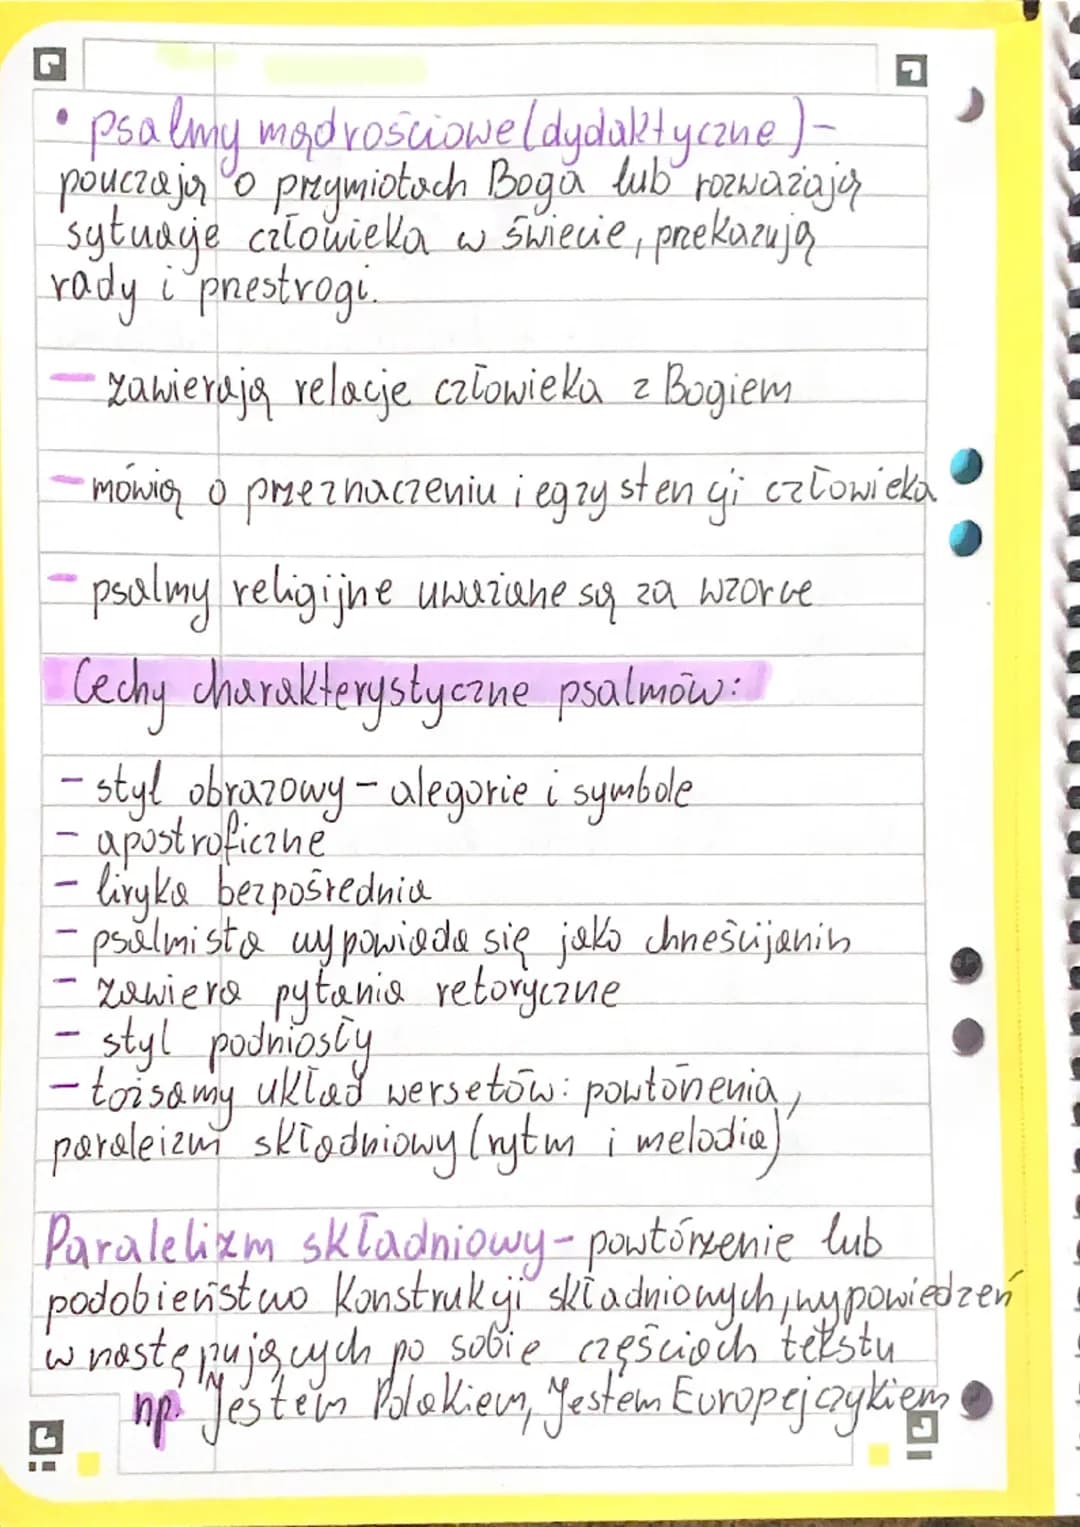 • psalmy mądrościowe (dydaktyczne) -
pouczają o przymiotach Boga lub rozważają
sytuację człowieka w świecie, przekazują
rady i przestrogi.
- zawierają relacje człowieka z Bogiem
- mówią o przeznaczeniu i egzystencji człowieka
- psalmy religijne uważane są za wzorce
Cechy charakterystyczne psalmów:
- styl obrazowy - alegorie i symbole
- apostroficzne
- liryka bezpośrednia
- psalmista wypowiada się jako chrześcijanin
- zawiera pytania retoryczne
- styl podniosły
- tożsamy układ wersetów: powtórzenia,
paraleizm składniowy (rytm i melodia)
Paralelizm składniowy - powtórzenie lub
podobieństwo konstrukcji składniowych, wypowiedzeń
w następujących po sobie częściach tekstu
np. Jestem Polakiem, Jestem Europejczykiem